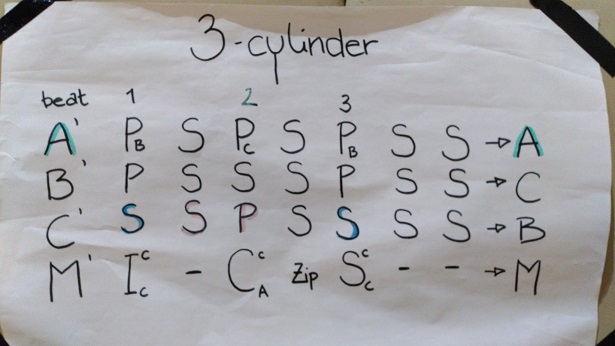 3-cylinder
beat 1 2 3
A' P_B S P_C S P_B S S → A
B' P S S S P S S → C
C' S S P S S S S → B
M' I^c_c - C^c_A Zip S^c_c - - → M